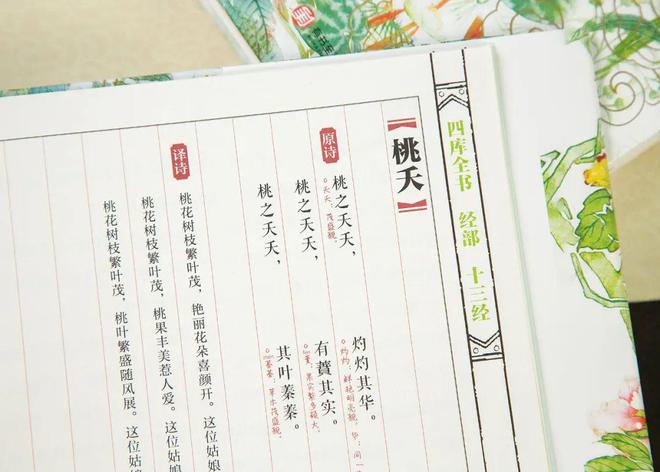 四库全书 经部 十三经
桃夭
原诗
桃之夭夭，灼灼其华。
夭夭：茂盛貌。
灼灼：鲜艳明亮貌。华：同
桃之夭夭，有蕡其实。
桃之夭夭，其叶蓁蓁。
蓁蓁：草木茂盛貌。
译诗
桃花树枝繁叶茂，艳丽花朵喜颜开。这位姑娘
桃花树枝繁叶茂，桃果丰美惹人爱。这位姑娘
桃花树枝繁叶茂，桃叶繁盛随风展。这位